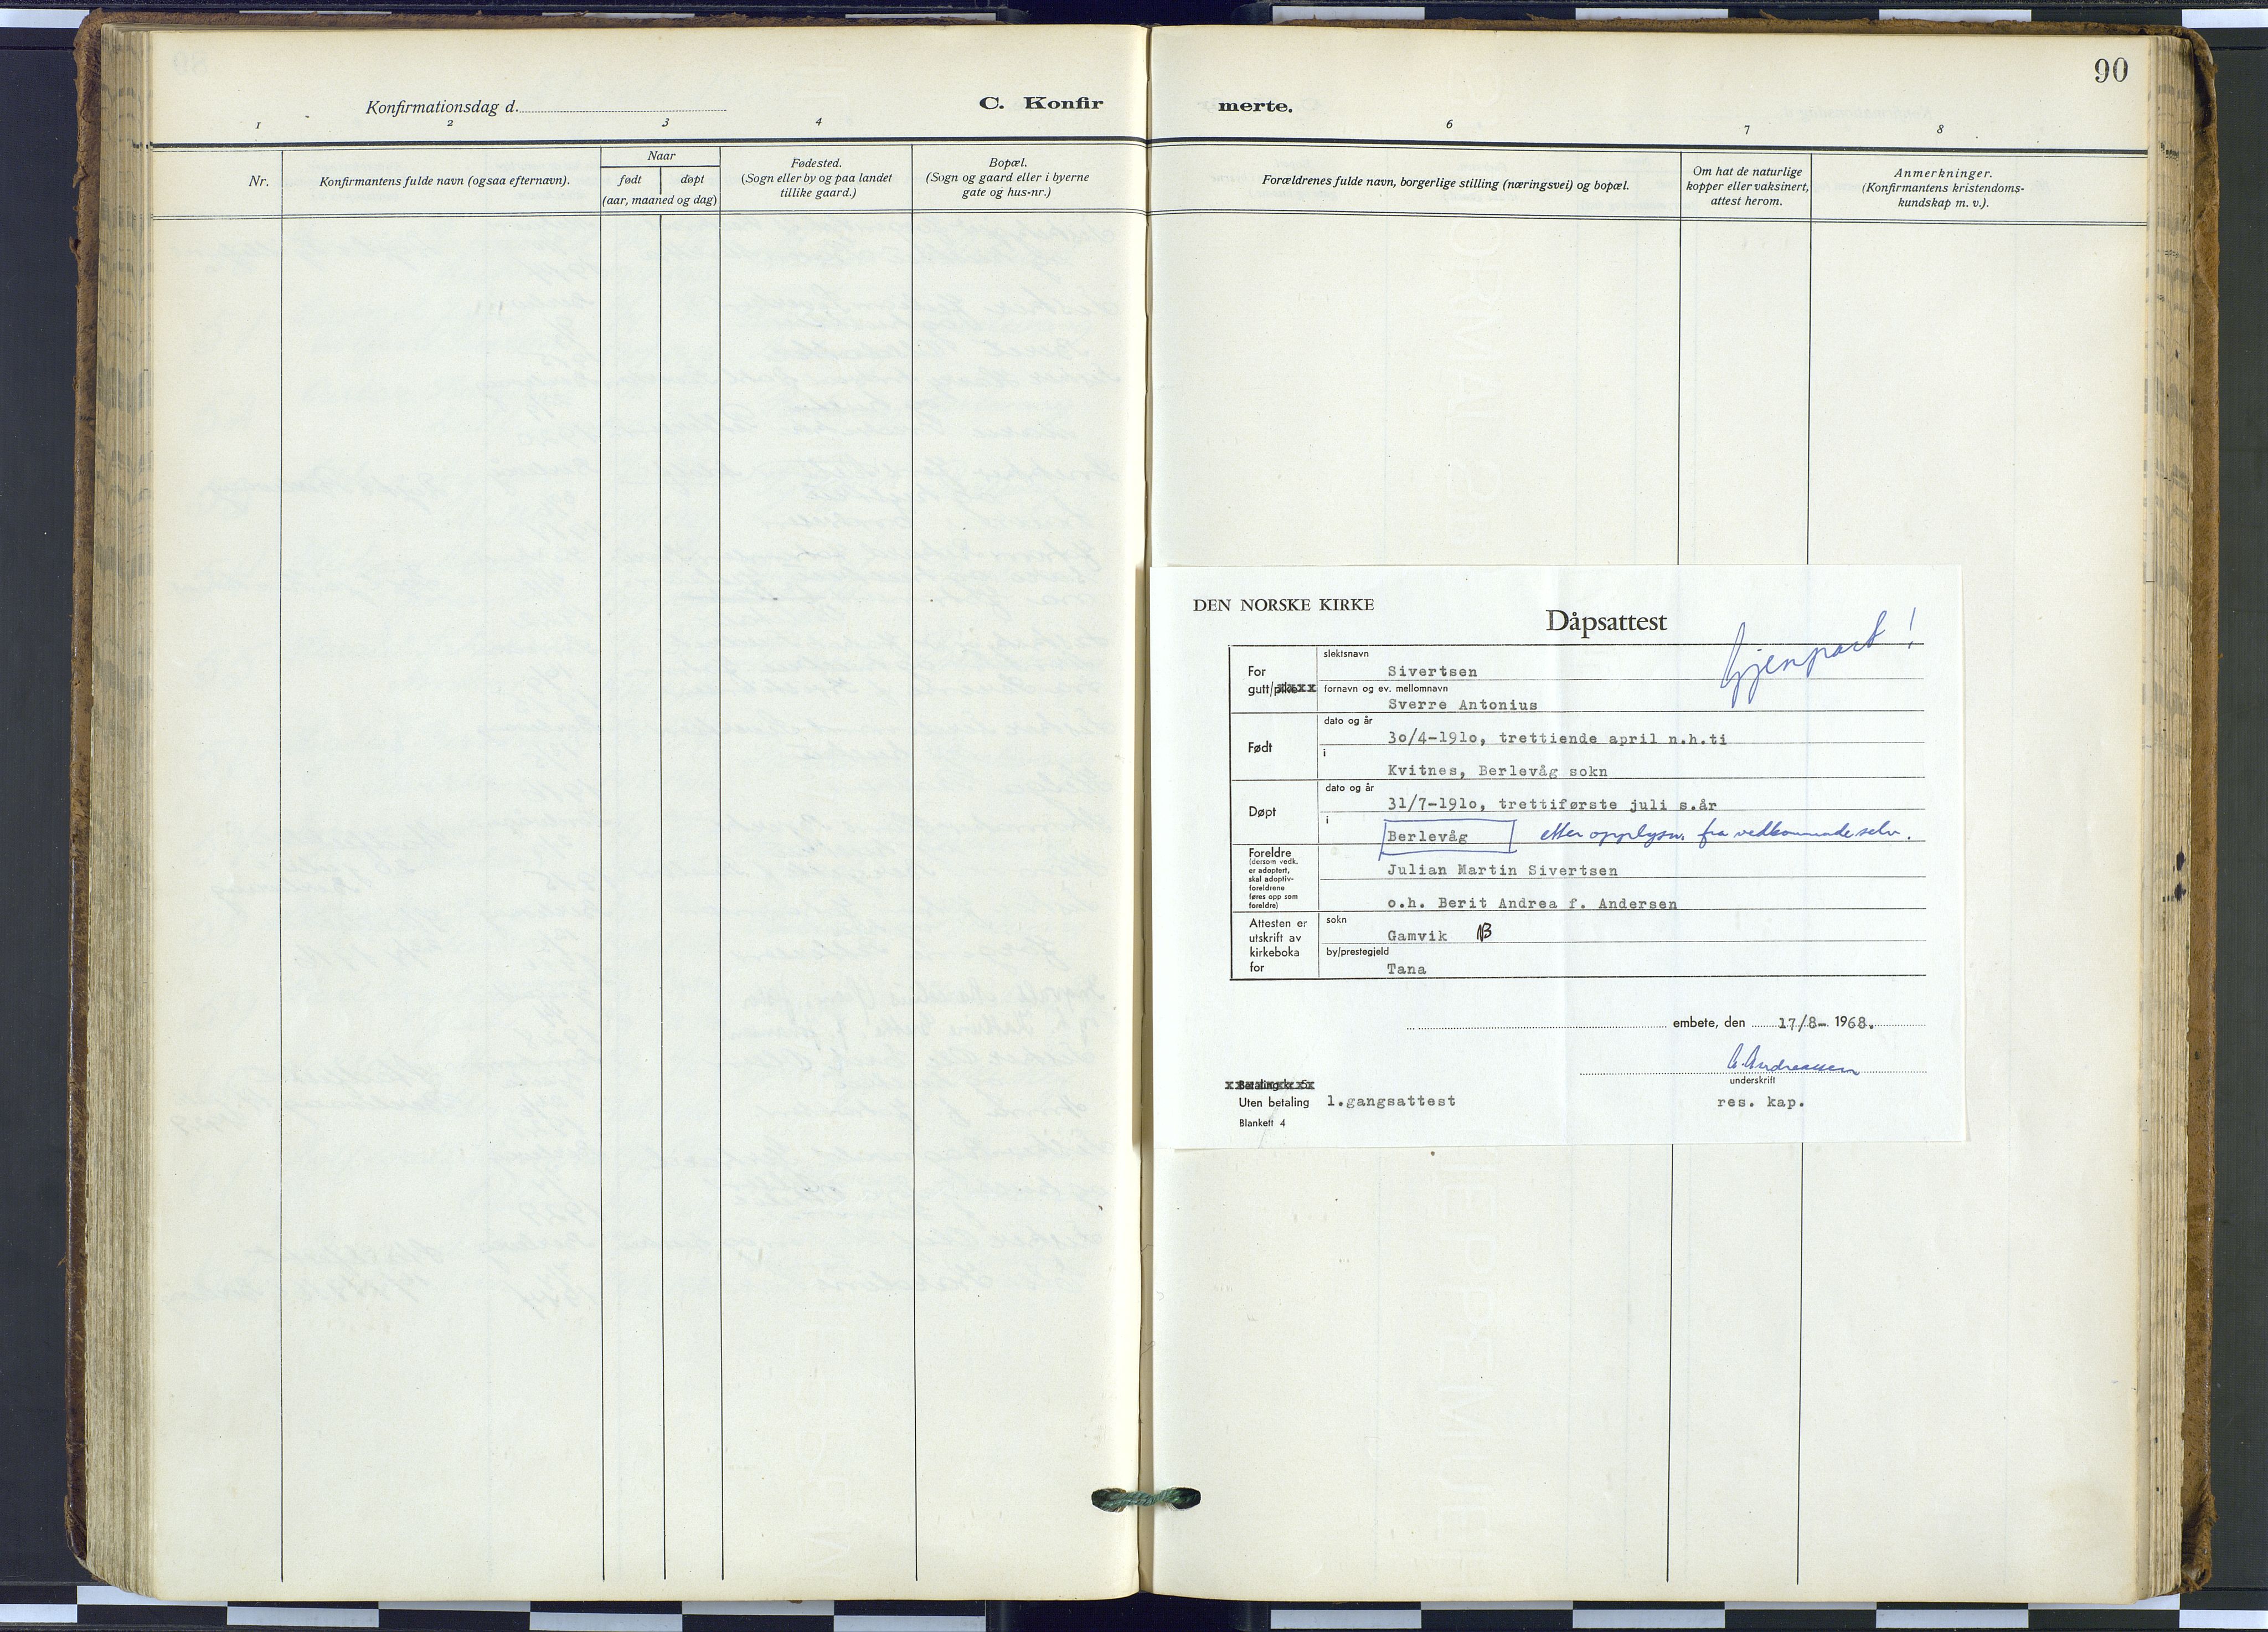 90
Konfirmationsdag d.
C. Konfir
merte.
1
2
3
4
6
7
8
Nr.
Konfirmantens fulde navn (ogsaa efternavn).
Naar
født
døpt
(aar, maaned og dag)
Fødested.
(Sogn eller by og paa landet
tillike gaard.)
Bopæl.
(Sogn og gaard eller i byerne
gate og hus-nr.)
Forældrenes fulde navn, borgerlige stilling (næringsvei) og bopæl.
Om hat de naturlige
kopper eller vaksinert,
attest herom.
Anmerkninger.
(Konfirmantens kristendoms-
kundskap m. v.).
DEN NORSKE KIRKE
Dåpsattest
Gjenpart!
For
gutt/pike
slektsnavn
Sivertsen
fornavn og ev. mellomnavn
Sverre Antonius
Født
dato og år
30/4-1910, trettiende april n.h.ti
i
Kvitnes, Berlevåg sokn
Døpt
dato og år
31/7-1910, trettiførste juli s.år
i
Berlevåg etter opplysn. fra vedkommende selv.
Foreldre
(dersom vedk.
er adoptert,
skal adoptiv-
foreldrene
føres opp som
foreldre)
Julian Martin Sivertsen
o.h. Berit Andrea f. Andersen
Attesten er
utskrift av
kirkeboka
for
sokn
Gamvik NB
by/prestegjeld
Tana
embete, den 17/8- 1968.
A. Andreassen
underskrift
res. kap.
Betaling kr. 5:
Uten betaling 1.gangsattest
Blankett 4